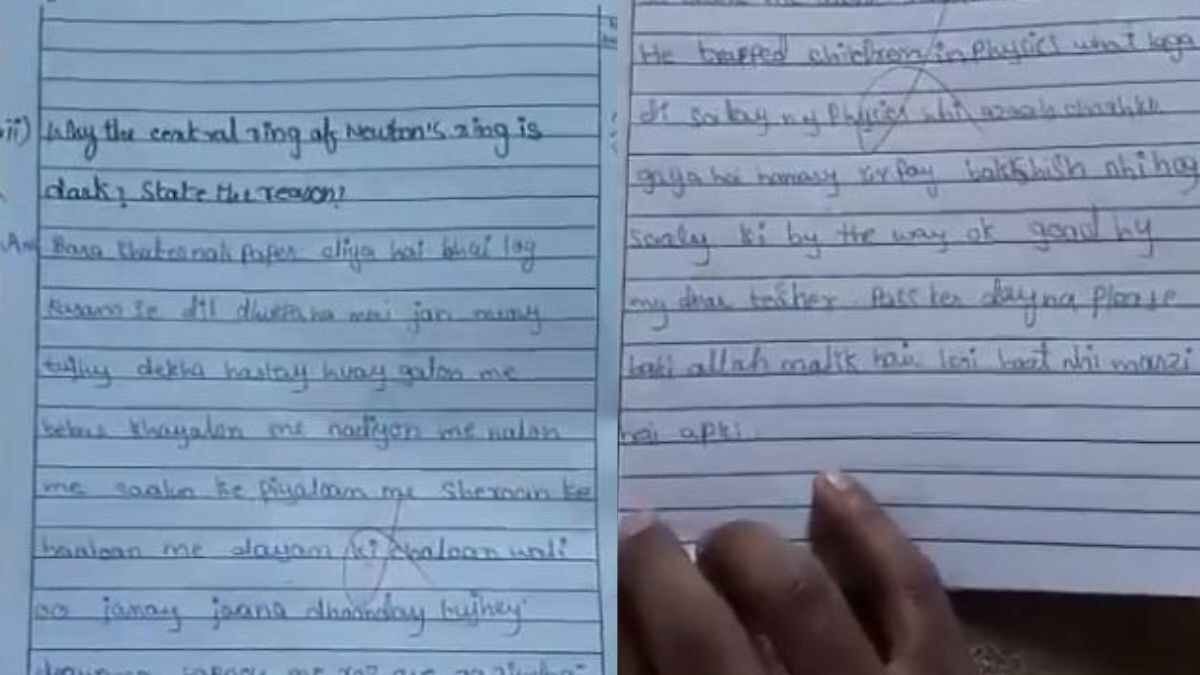 ii) Why the central ring of Newton's ring is
dark? State the reason?
Ans Bara khatarnak paper diya hai bhai log
kasam se dil dhukta hai meri jan meny
tujhy dekha hastay huay galon me
bekus khayalon me nadiyon me nalon
me saalon ke piyaloam me sheroan ke
baaloan me dayam ki chaloan wali
oo janay jaana dhoonday tujhey
He trapped children in physics what laga
di salay ny physics nhi azaab
gaya hai hamasy kir pay bakshish nhi hay
saaly ki by the way ok good by
my dear teaher. Pass ker dayna please
baki allah malik hai koi baat nhi marzi
hai apki.